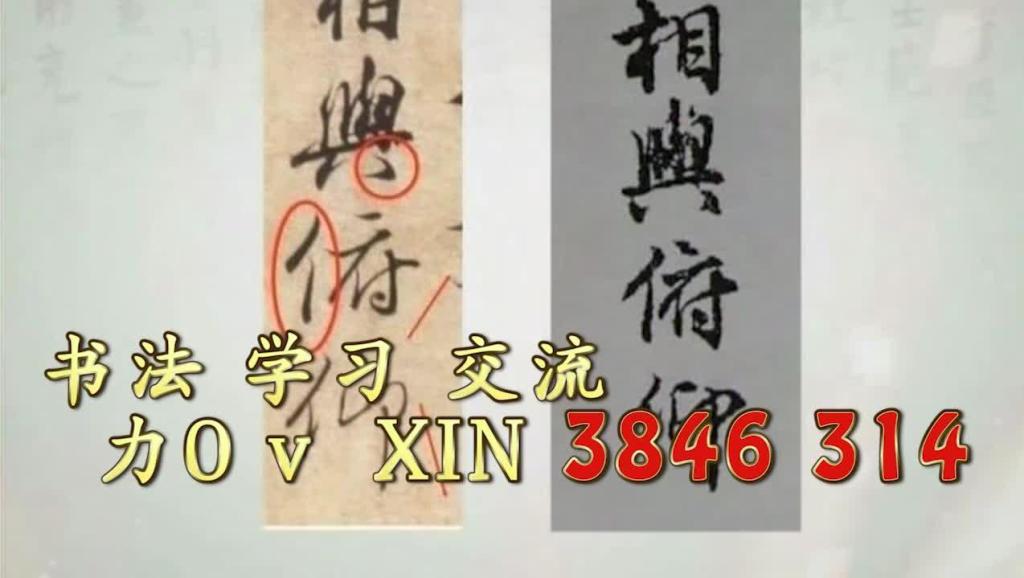 相與俯仰
相與俯仰
书法 学习 交流
力O v XIN 3846 314